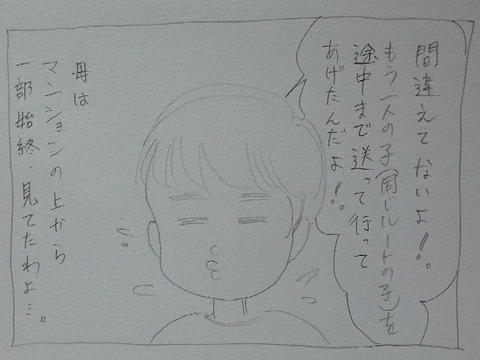 間違えてないよ!!。
もう一人の子(同じルートの子)を
途中まで送って行って
あげたんだよ!!。
母は
マンションの上から
一部始終、見てたわよ…。